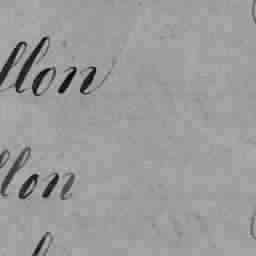 llon
llon